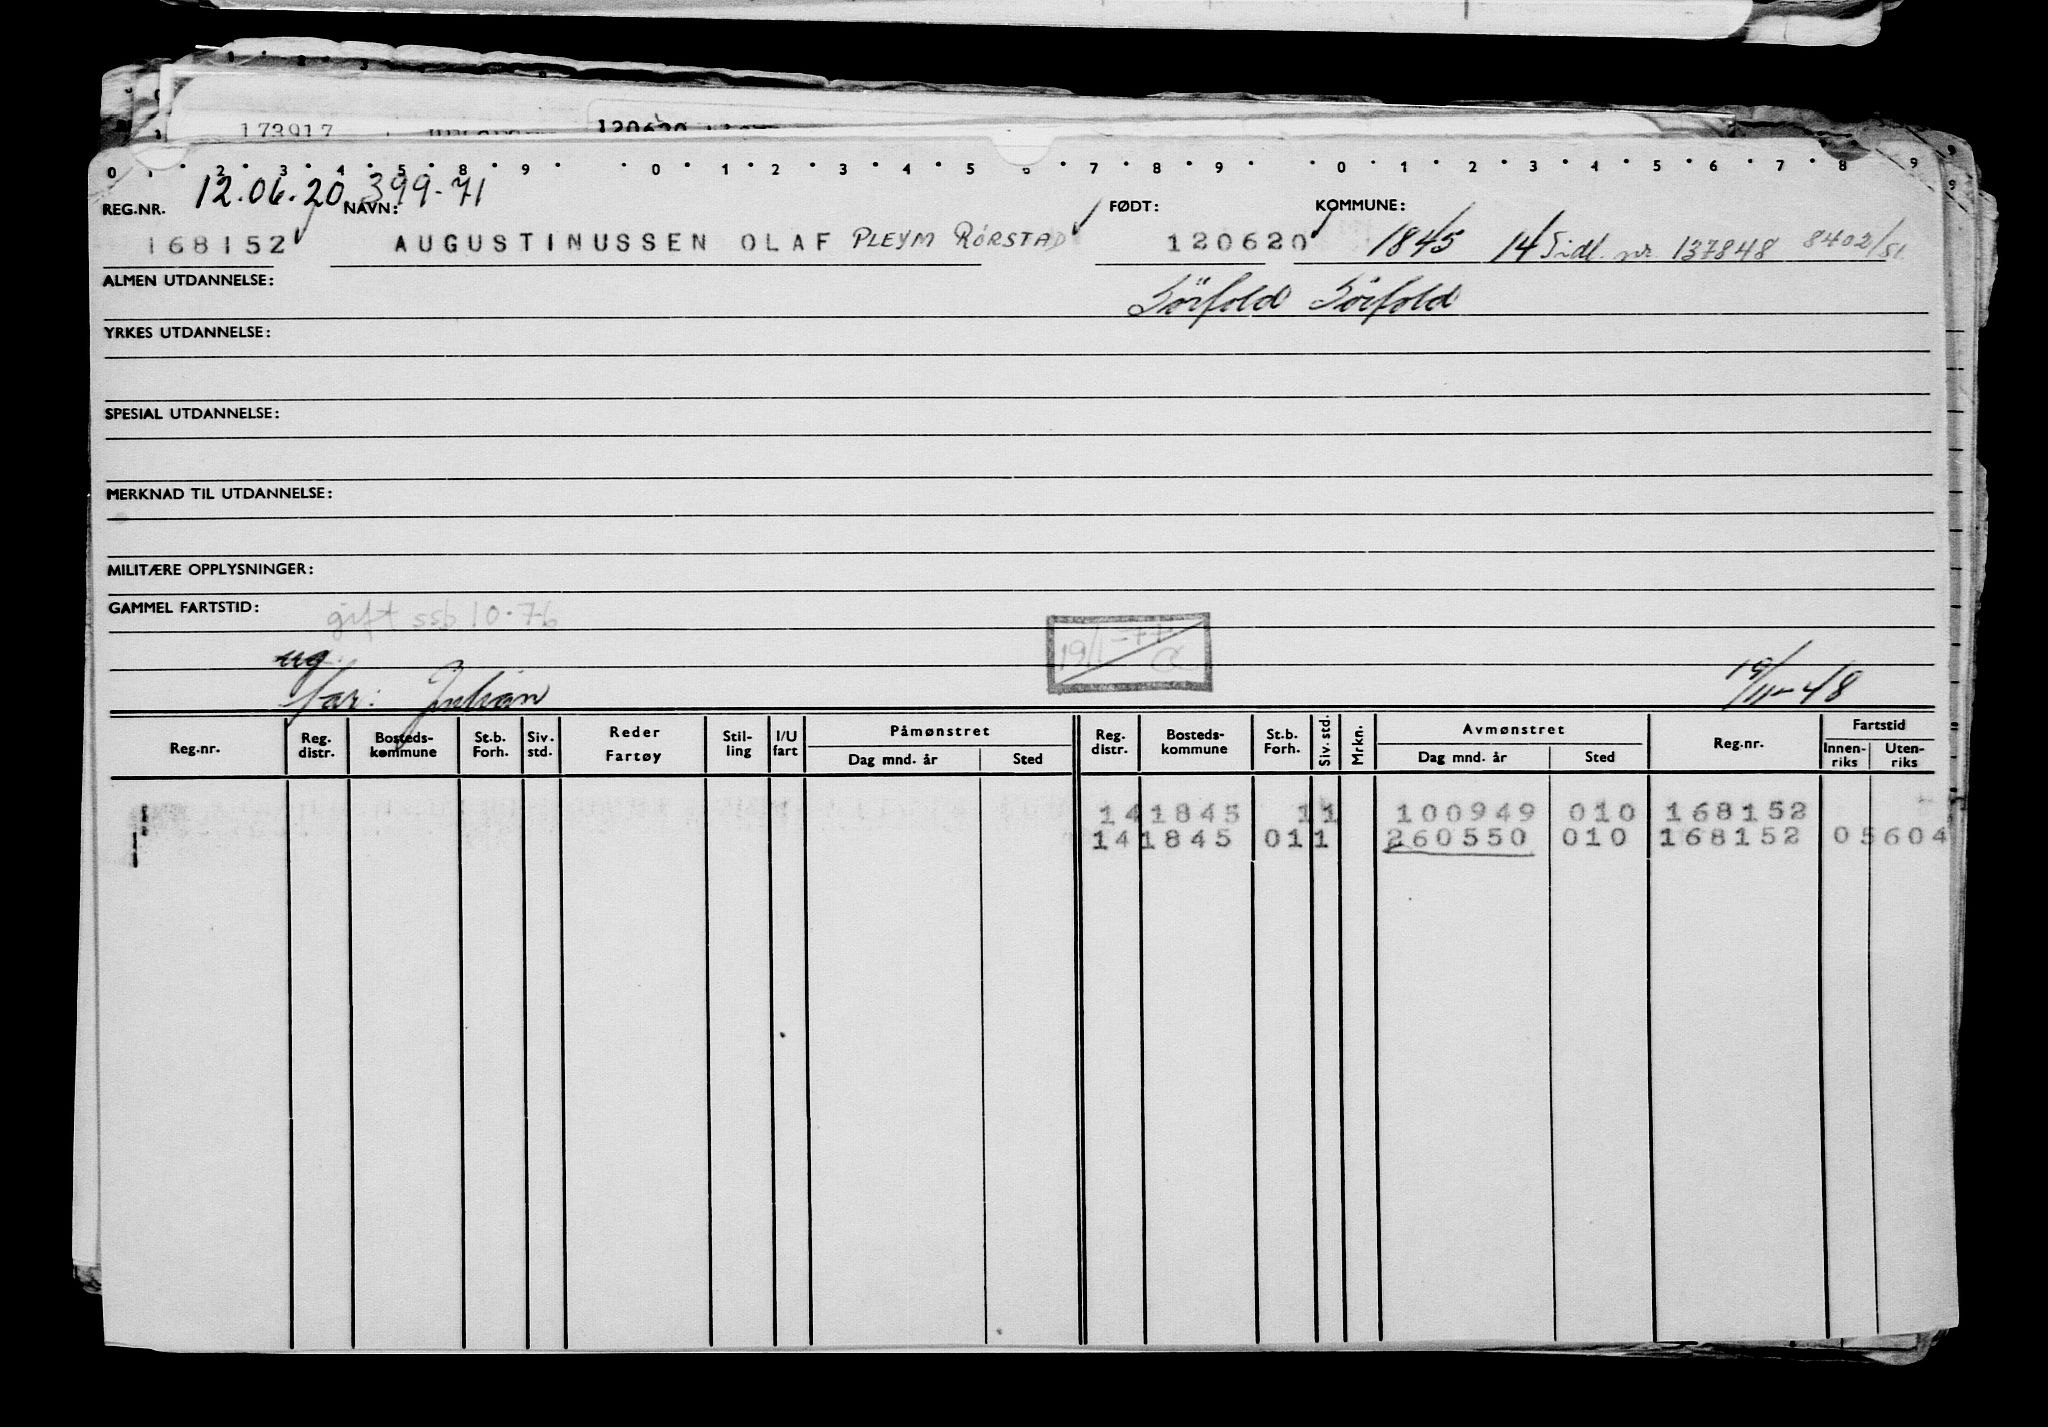 173917 120620
0 1 2 3 4 5 8 9 0 1 2 3 4 5 6 7 8 9 0 1 2 3 4 5 6 7 8 9
12.06.20 399-71
REG.NR. NAVN: FØDT: KOMMUNE:
168152 AUGUSTINUSSEN OLAF PLEYM RÖRSTAD 120620 1845 14 Tidl. nr. 137848 8402/51
ALMEN UTDANNELSE: Sörfold Sörfold
YRKES UTDANNELSE:
SPESIAL UTDANNELSE:
MERKNAD TIL UTDANNELSE:
MILITÆRE OPPLYSNINGER:
GAMMEL FARTSTID: gift ssb 10.76
19/1-77
ug.
far: Julian 19/11-48
Reg.nr. Reg. distr. Bosteds-kommune St.b. Forh. Siv. std. Reder Fartøy Stil-ling I/U fart Påmønstret Dag mnd. år Sted Reg. distr. Bosteds-kommune St.b. Forh. Siv. std. Mrkn. Avmønstret Dag mnd. år Sted Reg.nr. Fartstid Innen-riks Uten-riks
14 1845 11 100949 010 168152
14 1845 011 260550 010 168152 05604